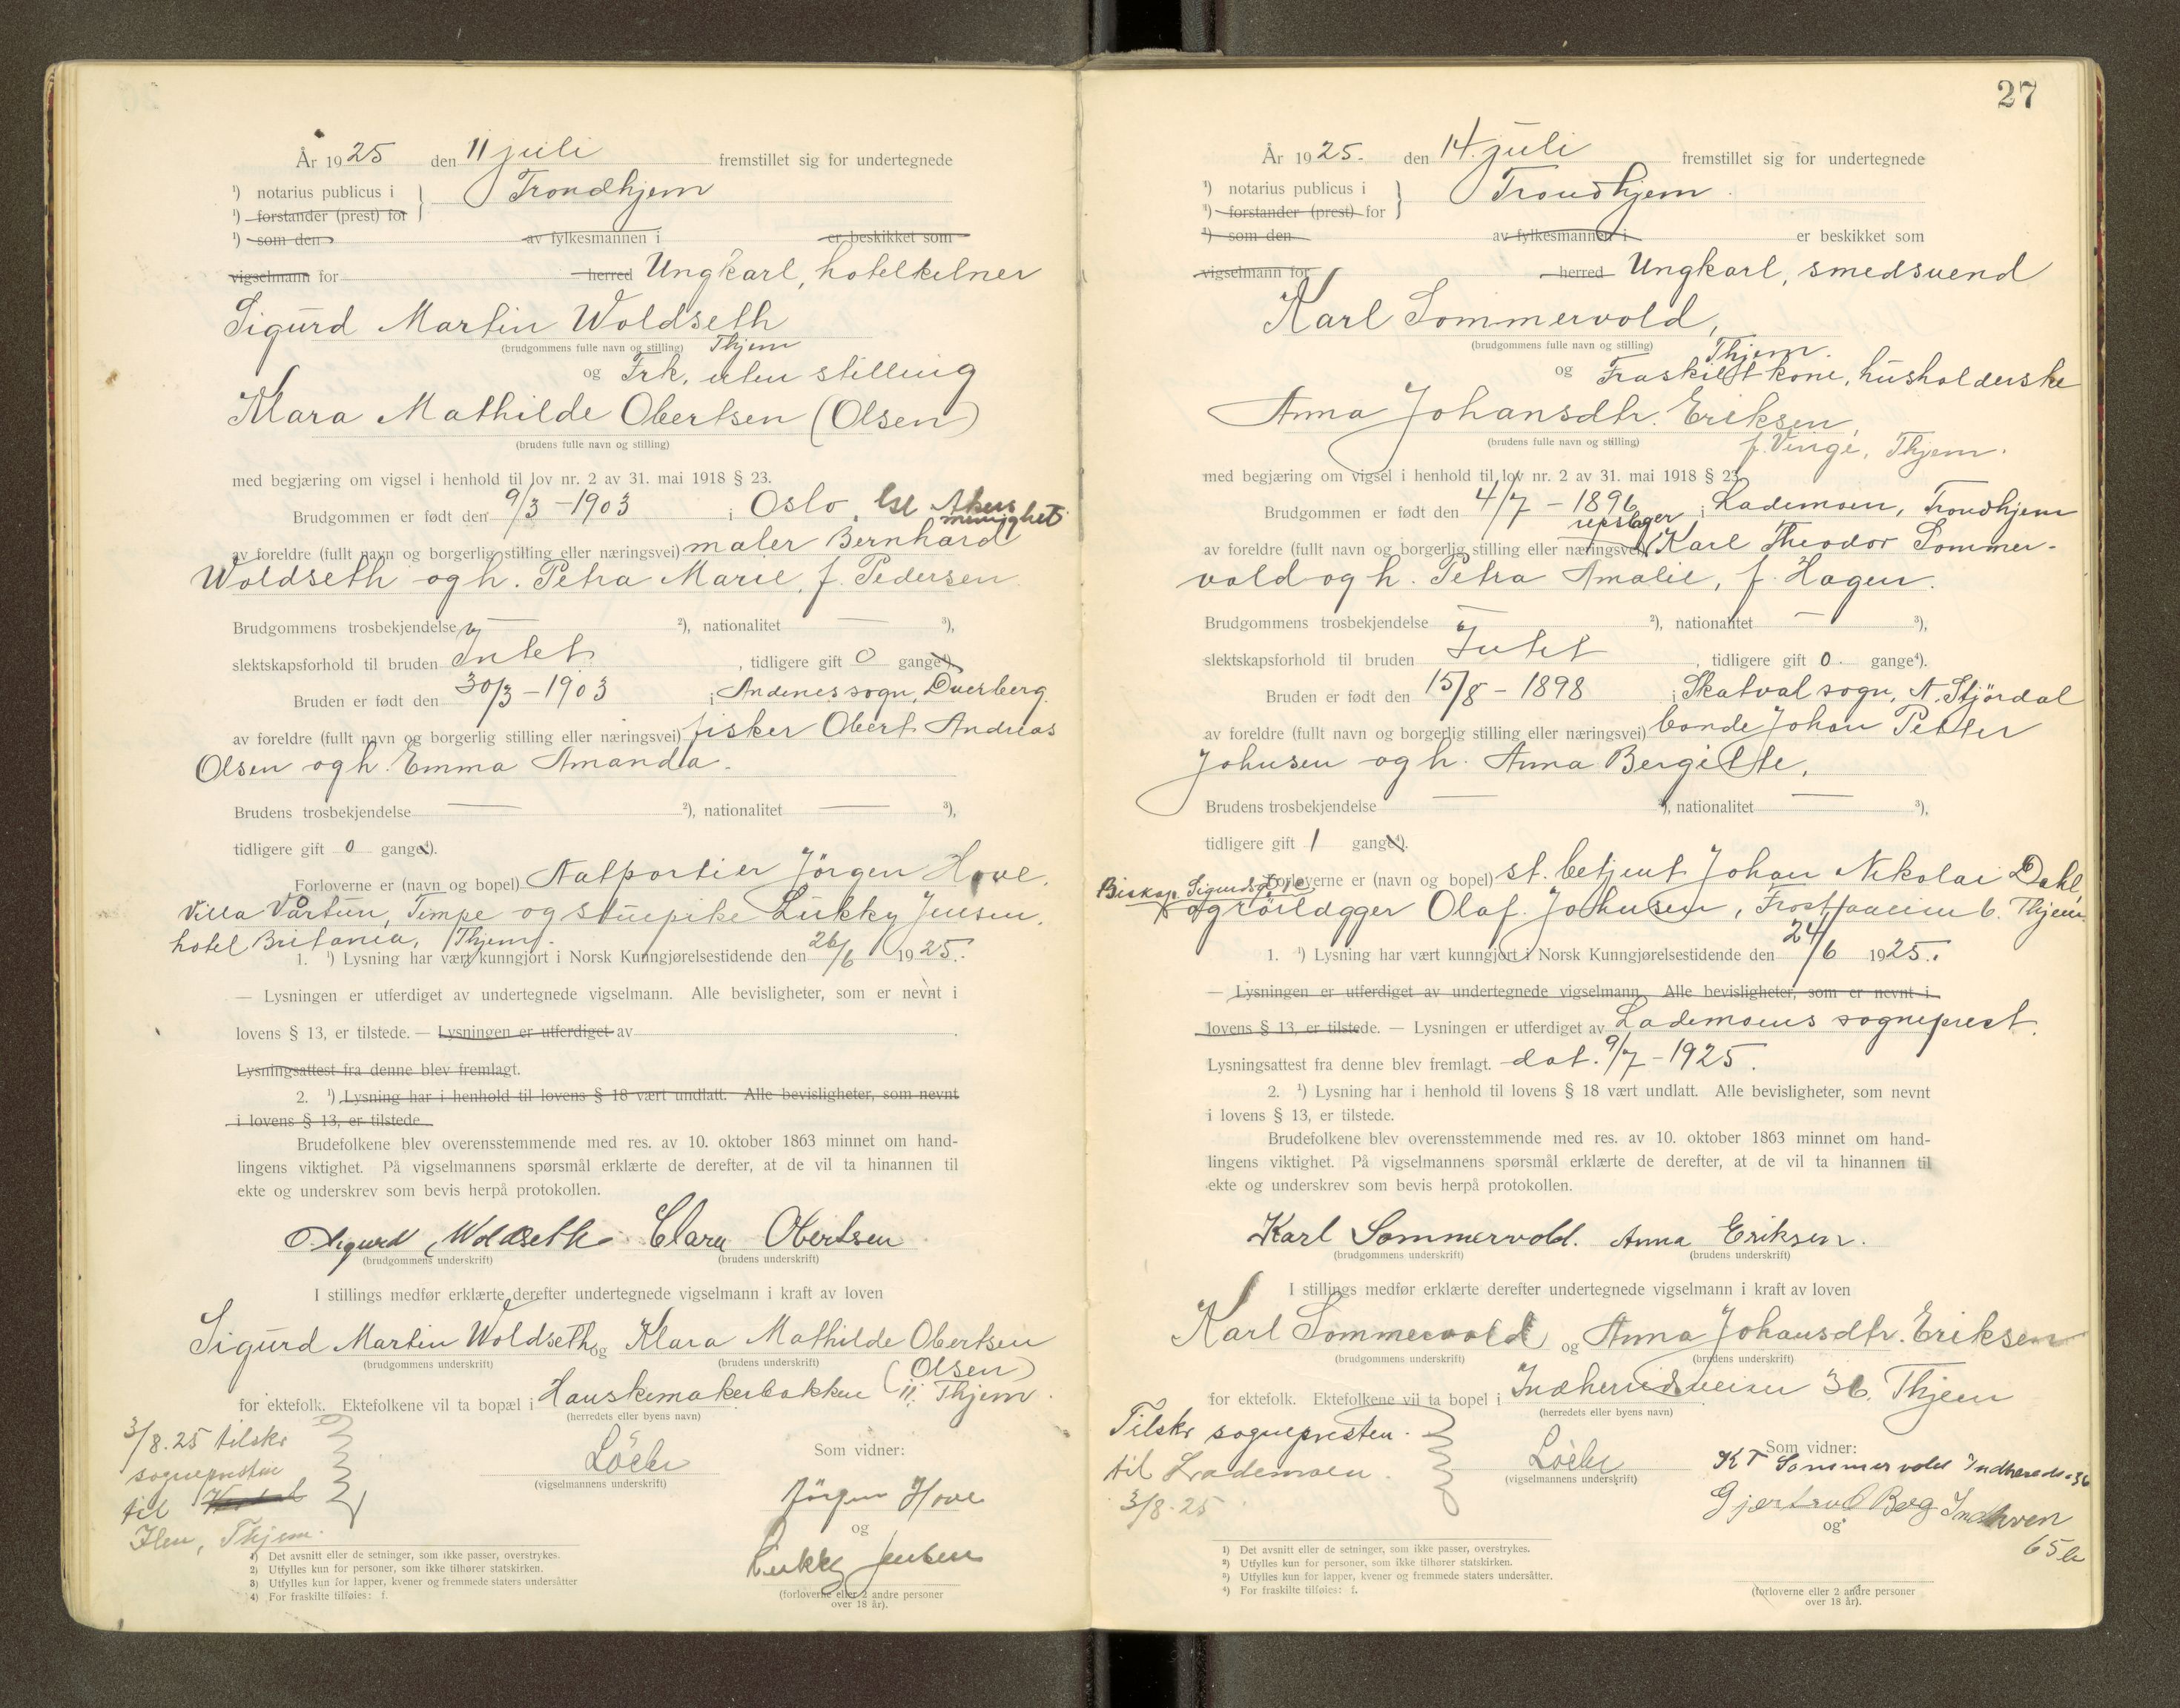 År 1925 den 11 juli fremstillet sig for undertegnede
¹) notarius publicus i } Trondhjem
¹) forstander (prest) for
¹) som den av fylkesmannen i er beskikket som
vigselmann for herred Ungkarl, hotelkelner
Sigurd Martin Woldseth
(brudgommens fulle navn og stilling) Thjem
og Frk. uten stilling
Klara Mathilde Obertsen (Olsen)
(brudens fulle navn og stilling)
med begjæring om vigsel i henhold til lov nr. 2 av 31. mai 1918 § 23.
Brudgommen er født den 9/3 - 1903 i Oslo, Akers
menighet
av foreldre (fullt navn og borgerlig stilling eller næringsvei) maler Bernhard
Woldseth og h. Petra Marie, f. Pedersen.
Brudgommens trosbekjendelse — ²), nationalitet — ³),
slektskapsforhold til bruden Intet, tidligere gift 0 gange⁴).
Bruden er født den 30/3 - 1903 i Andenes sogn, Dverberg.
av foreldre (fullt navn og borgerlig stilling eller næringsvei) fisker Obert Andreas
Olsen og h. Emma Amanda.
Brudens trosbekjendelse — ²), nationalitet — ³),
tidligere gift 0 gange⁴).
Forloverne er (navn og bopel) Natportier Jörgen Hove,
Villa Vårtun, Tempe og stuepike Lukky Jensen,
hotel Britania, Thjem.
1. ¹) Lysning har vært kunngjort i Norsk Kunngjørelsestidende den 26/6 1925.
— Lysningen er utferdiget av undertegnede vigselmann. Alle bevisligheter, som er nevnt i
lovens § 13, er tilstede. — Lysningen er utferdiget av
Lysningsattest fra denne blev fremlagt.
2. ¹) Lysning har i henhold til lovens § 18 vært undlatt. Alle bevisligheter, som nevnt
i lovens § 13, er tilstede.
Brudefolkene blev overensstemmende med res. av 10. oktober 1863 minnet om hand-
lingens viktighet. På vigselmannens spørsmål erklærte de derefter, at de vil ta hinannen til
ekte og underskrev som bevis herpå protokollen.
Sigurd Woldseth Clara Obertsen
(brudgommens underskrift) (brudens underskrift)
I stillings medfør erklærte derefter undertegnede vigselmann i kraft av loven
Sigurd Martin Woldseth og Klara Mathilde Obertsen
(brudgommens underskrift) (brudens underskrift) (Olsen)
for ektefolk. Ektefolkene vil ta bopæl i Hanskemakerbakken 11. Thjem.
(herredets eller byens navn)
3/8.25 tilskr
sognepresten
til
Ilen, Thjem.
(vigselmannens underskrift)
Som vidner:
Jörgen Hove
og
Lukky Jensen
(forloverne eller 2 andre personer
over 18 år).
1) Det avsnitt eller de setninger, som ikke passer, overstrykes.
2) Utfylles kun for personer, som ikke tilhører statskirken.
3) Utfylles kun for lapper, kvener og fremmede staters undersåtter
4) For fraskilte tilføies: f.
27
År 1925. den 14. juli fremstillet sig for undertegnede
¹) notarius publicus i } Trondhjem.
¹) forstander (prest) for
¹) som den av fylkesmannen i er beskikket som
vigselmann for herred Ungkarl, smedsvend
Karl Sommervold,
(brudgommens fulle navn og stilling) Thjem.
og Fraskilt kone, husholderske
Anna Johansdtr. Eriksen,
(brudens fulle navn og stilling) f. Vinge, Thjem.
med begjæring om vigsel i henhold til lov nr. 2 av 31. mai 1918 § 23
Brudgommen er født den 4/7 - 1896 i Lademoen, Trondhjem
repslager
av foreldre (fullt navn og borgerlig stilling eller næringsvei) Karl Theodor Sommer-
vold og h. Petra Amalie, f. Hagen.
Brudgommens trosbekjendelse — ²), nationalitet — ³),
slektskapsforhold til bruden Intet, tidligere gift 0 gange⁴).
Bruden er født den 15/8 - 1898 i Skatval sogn, N. Stjördal
av foreldre (fullt navn og borgerlig stilling eller næringsvei) bonde Johan Petter
Johnsen og h. Anna Bergitte,
Brudens trosbekjendelse — ²), nationalitet — ³),
tidligere gift 1 gange⁴).
Forloverne er (navn og bopel) st. betjent Johan Nikolai Dahl,
Biskop Sigurdsgt
og rörlægger Olaf Johnsen, 6. Thjem.
1. ¹) Lysning har vært kunngjort i Norsk Kunngjørelsestidende den 24/6 1925.
— Lysningen er utferdiget av undertegnede vigselmann. Alle bevisligheter, som er nevnt i
lovens § 13, er tilstede. — Lysningen er utferdiget av Lademoens sogneprest.
Lysningsattest fra denne blev fremlagt. dat. 9/7 - 1925.
2. ¹) Lysning har i henhold til lovens § 18 vært undlatt. Alle bevisligheter, som nevnt
i lovens § 13, er tilstede.
Brudefolkene blev overensstemmende med res. av 10. oktober 1863 minnet om hand-
lingens viktighet. På vigselmannens spørsmål erklærte de derefter, at de vil ta hinannen til
ekte og underskrev som bevis herpå protokollen.
Karl Sommervold. Anna Eriksen.
(brudgommens underskrift) (brudens underskrift)
I stillings medfør erklærte derefter undertegnede vigselmann i kraft av loven
Karl Sommervold og Anna Johansdtr. Eriksen
(brudgommens underskrift) (brudens underskrift)
for ektefolk. Ektefolkene vil ta bopel i Indherredsveien 36. Thjem
(herredets eller byens navn)
Tilskr sognepresten
til Lademoen.
3/8.25
(vigselmannens underskrift)
Som vidner:
K T Sommervold Indhereds. 36
Gjertrud Berg
og
65 b
(forloverne eller 2 andre personer
over 18 år).
1) Det avsnitt eller de setninger, som ikke passer, overstrykes.
2) Utfylles kun for personer, som ikke tilhører statskirken.
3) Utfylles kun for lapper, kvener og fremmede staters undersåtter.
4) For fraskilte tilføies: f.